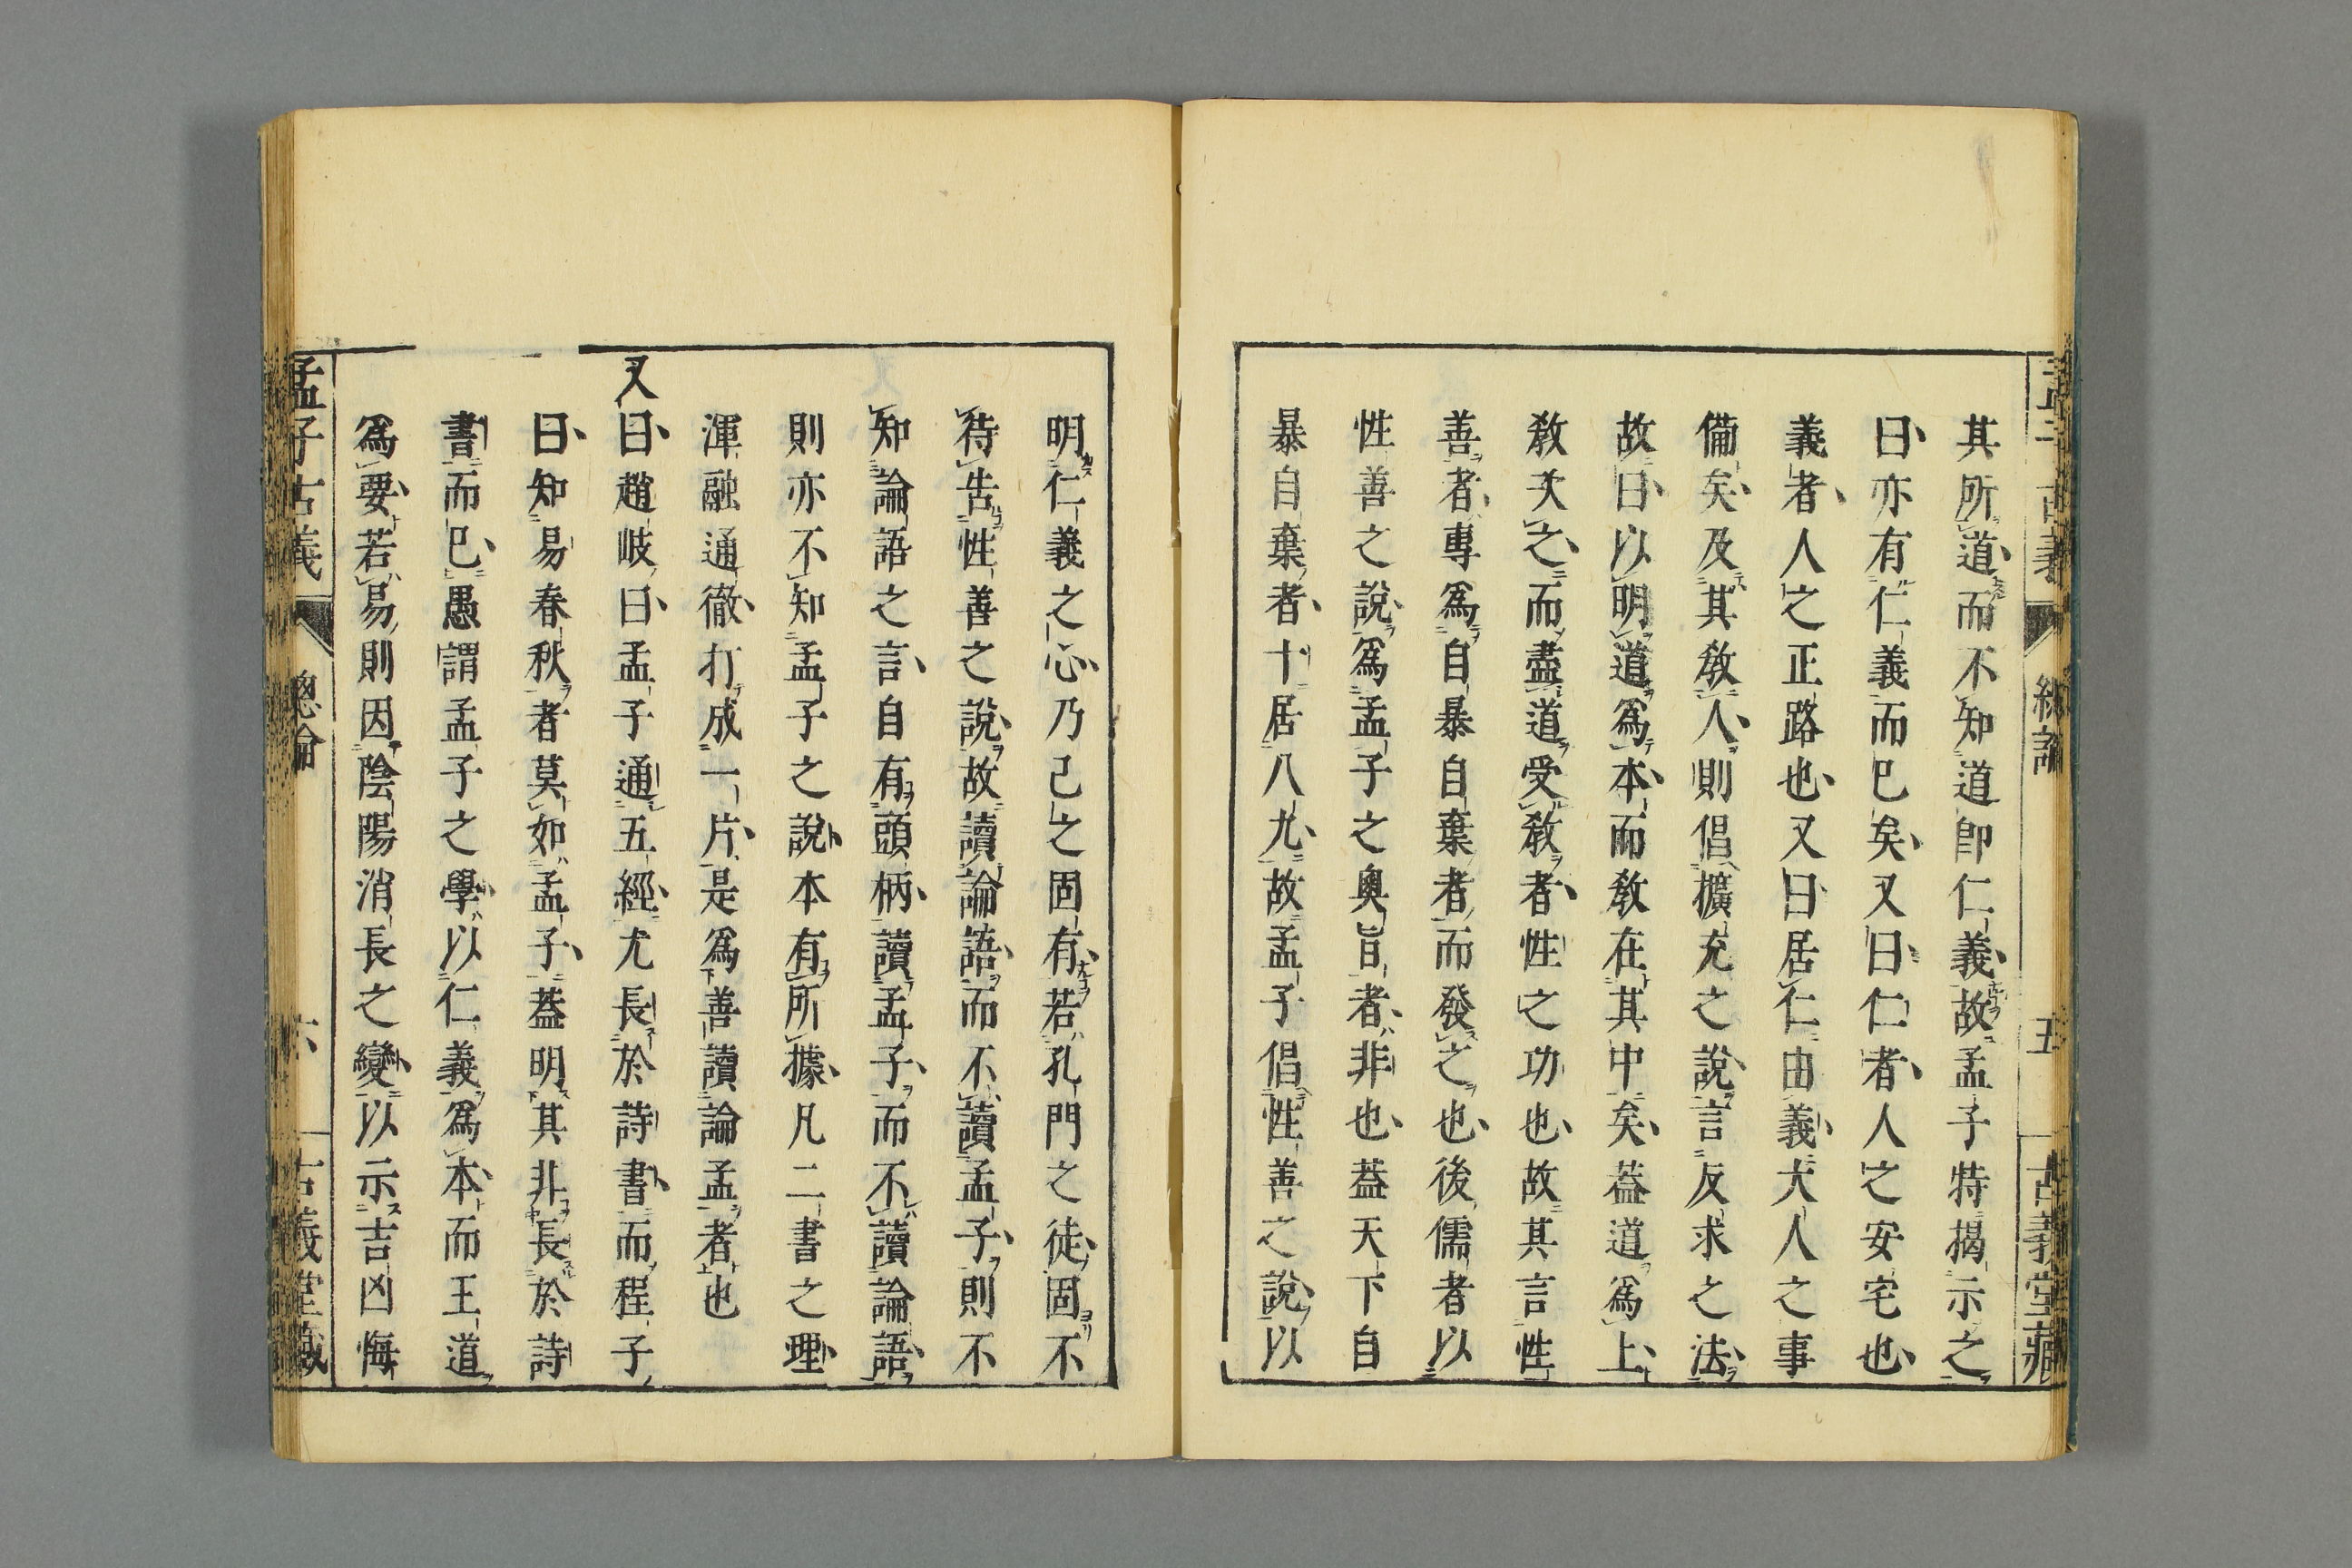 孟子古義 總論 五 古義堂藏
其所道而不知道卽仁義故孟子特揭示之
曰亦有仁義而已矣又曰仁者人之安宅也
義者人之正路也又曰居仁由義大人之事
備矣及其敎人則倡擴充之說言反求之法
故曰以明道爲本而敎在其中矣蓋道爲上
敎次之而盡道受敎者性之功也故其言性
善者專爲自暴自棄者而發之也後儒者以
性善之說爲孟子之奧旨者非也蓋天下自
暴自棄者十居八九故孟子倡性善之說以
明仁義之心乃己之固有若孔門之徒固不
待告性善之說故讀論語而不讀孟子則不
知論語之言自有頭柄讀孟子而不讀論語
則亦不知孟子之說本有所據凡二書之理
渾融通徹打成一片是爲善讀論孟者也
又曰趙岐曰孟子通五經尤長於詩書而程子
曰知易春秋者莫如孟子蓋明其非長於詩
書而已愚謂孟子之學以仁義爲本而王道
爲要若易則因陰陽消長之變以示吉凶悔
孟子古義 總論 六 古義堂藏